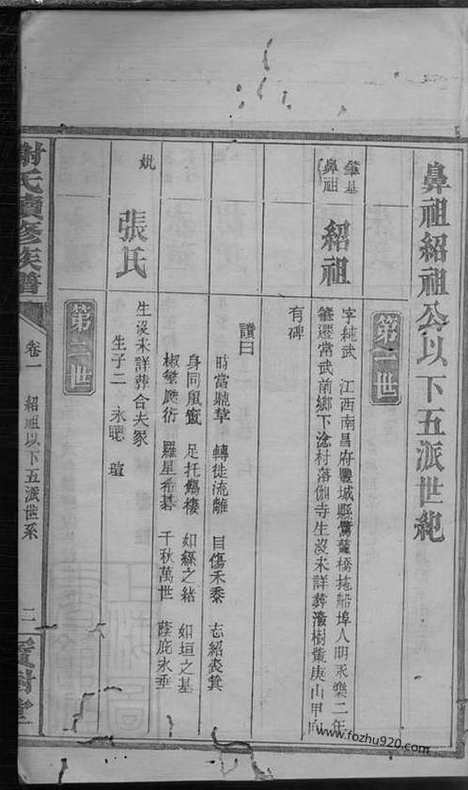 鼻祖紹祖公以下五派世紀
第一世
肇基
鼻祖
紹祖
字純武 江西南昌府豐城縣鸞
橋拖船埠人明永樂二年
肇遷常武前鄉下滄村落伽寺生沒未詳葬潑樹黨庚山甲向
有碑
讚曰
時當 轉徙流離 目傷禾黍 志紹裘箕
身同風 足托鷦棲 如絲之緒 如垣之基
椒蕃衍 羅星布碁 千秋萬世 蔭庇永垂
妣
張氏
生沒未詳葬合夫冢
生子二 永聰 瑄
第二世
謝氏續修族譜
卷一
紹祖以下五派世系
二
寶樹堂
www.fozhu920.com